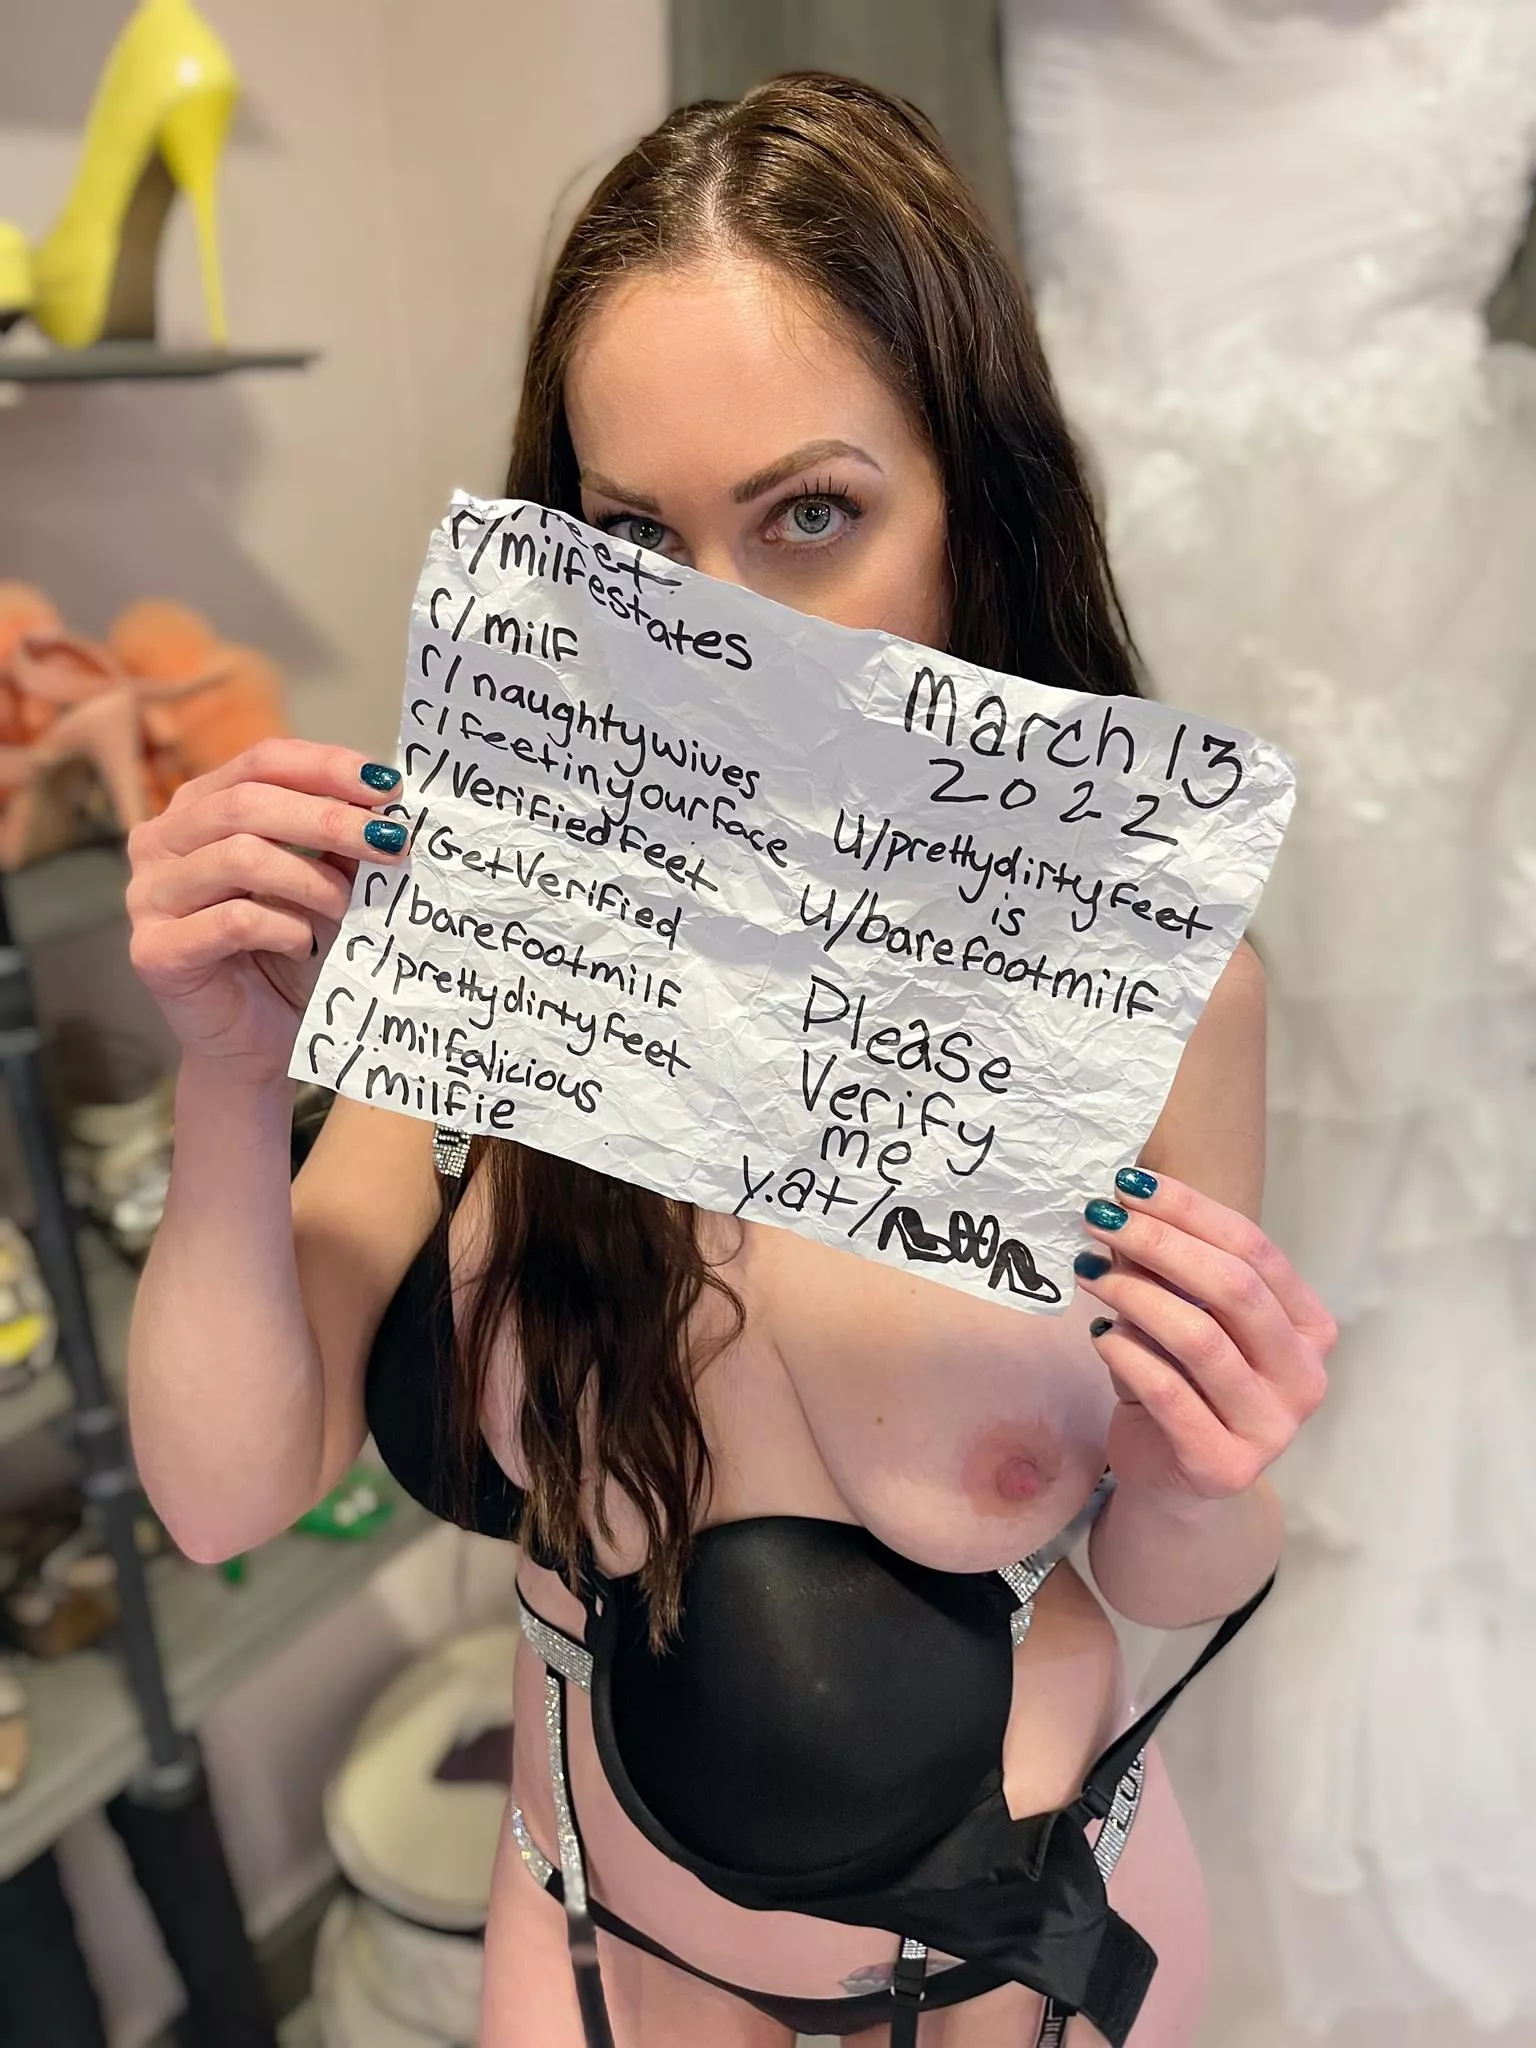 r/feet
r/milfestates
r/milf
r/naughtywives
r/feetinyourface
r/Verifiedfeet
r/GetVerified
r/barefootmilf
r/prettydirtyfeet
r/milfalicious
r/milfie
March 13
2022
U/prettydirtyfeet
is
U/barefootmilf
Please
Verify
me
y.at/👠👀👠